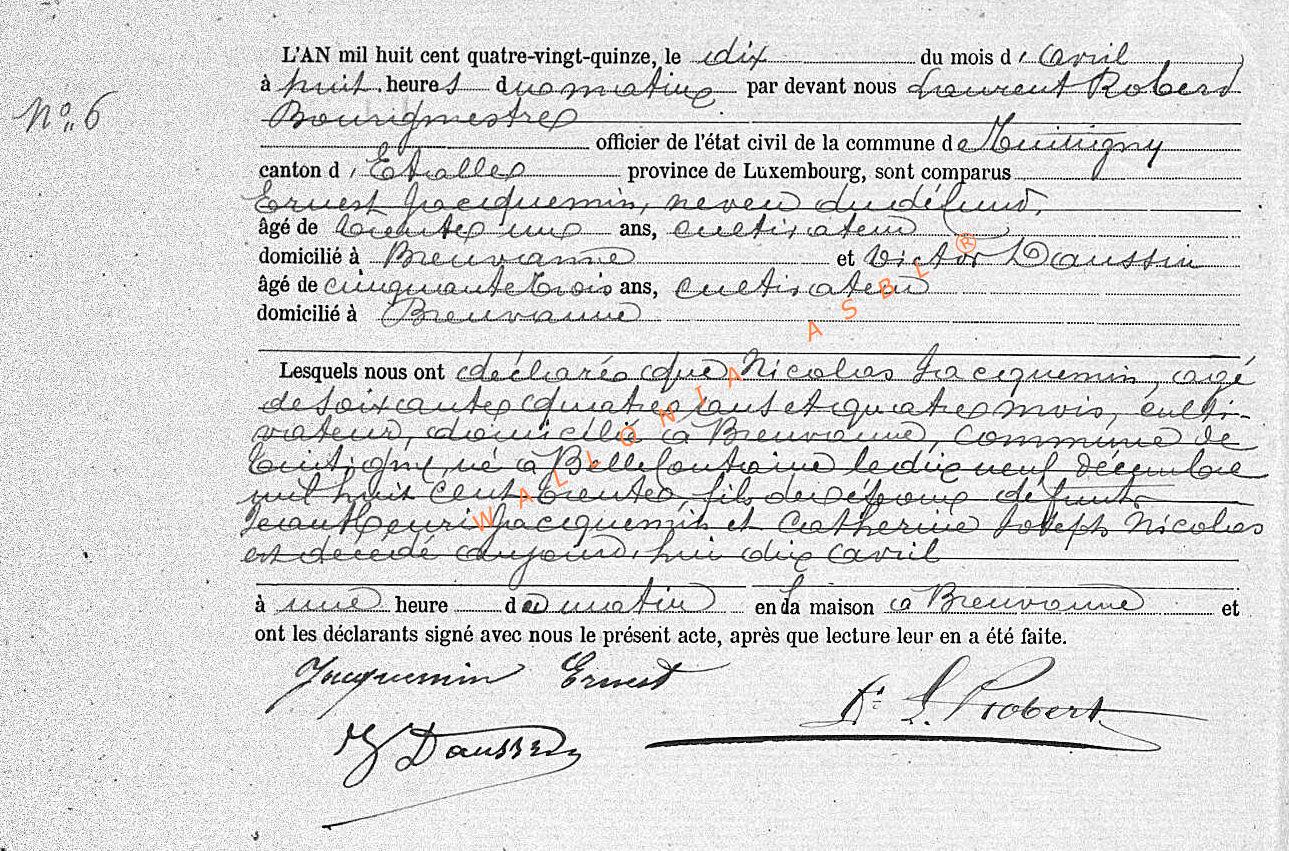 L'AN mil huit cent quatre-vingt-quinze, le dix du mois d'avril
à huit heures du matin par devant nous Laurent Robert
N° 6
Bourgmestre
officier de l'état civil de la commune de Tintigny
canton d'Etalle province de Luxembourg, sont comparus
Ernest Jacquemin, neveu du défunt,
âgé de trente un ans, cultivateur
domicilié à Breuvanne et Victor Daussin
âgé de cinquante trois ans, cultivateur
domicilié à Breuvanne
Lesquels nous ont déclaré que Nicolas Jacquemin, agé
de soixante quatre ans et quatre mois, culti-
vateur, domicilié à Breuvanne, commune de
Tintigny, né à Bellefontaine le dix neuf décembre
mil huit cent trente, fils des époux défunts
Jean Henri Jacquemin et Catherine Joseph Nicolas
est decedé aujourd'hui dix avril
à une heure du matin en la maison à Breuvanne et
ont les déclarants signé avec nous le présent acte, après que lecture leur en a été faite.
Jacquemin Ernest
Dr L. Robert
V Daussin
WALLONIA ASBL ®